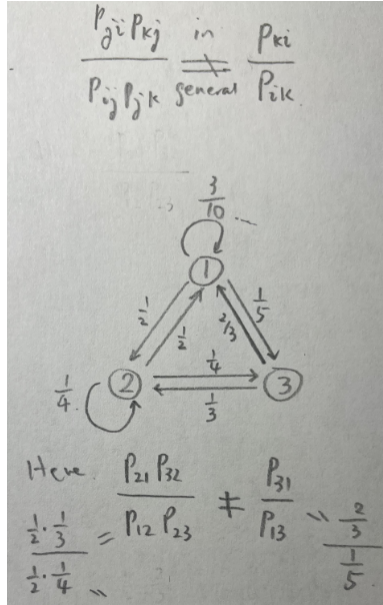 P_{ji} P_{kj} / P_{ij} P_{jk} ≠ in general P_{ki} / P_{ik}
3/10
1
1/2
1/2
2/3
1/5
1/4
2
1/4
3
1/3
Here P_{21} P_{32} / P_{12} P_{23} ≠ P_{31} / P_{13}
1/2 · 1/3 / 1/2 · 1/4 = = 2/3 / 1/5